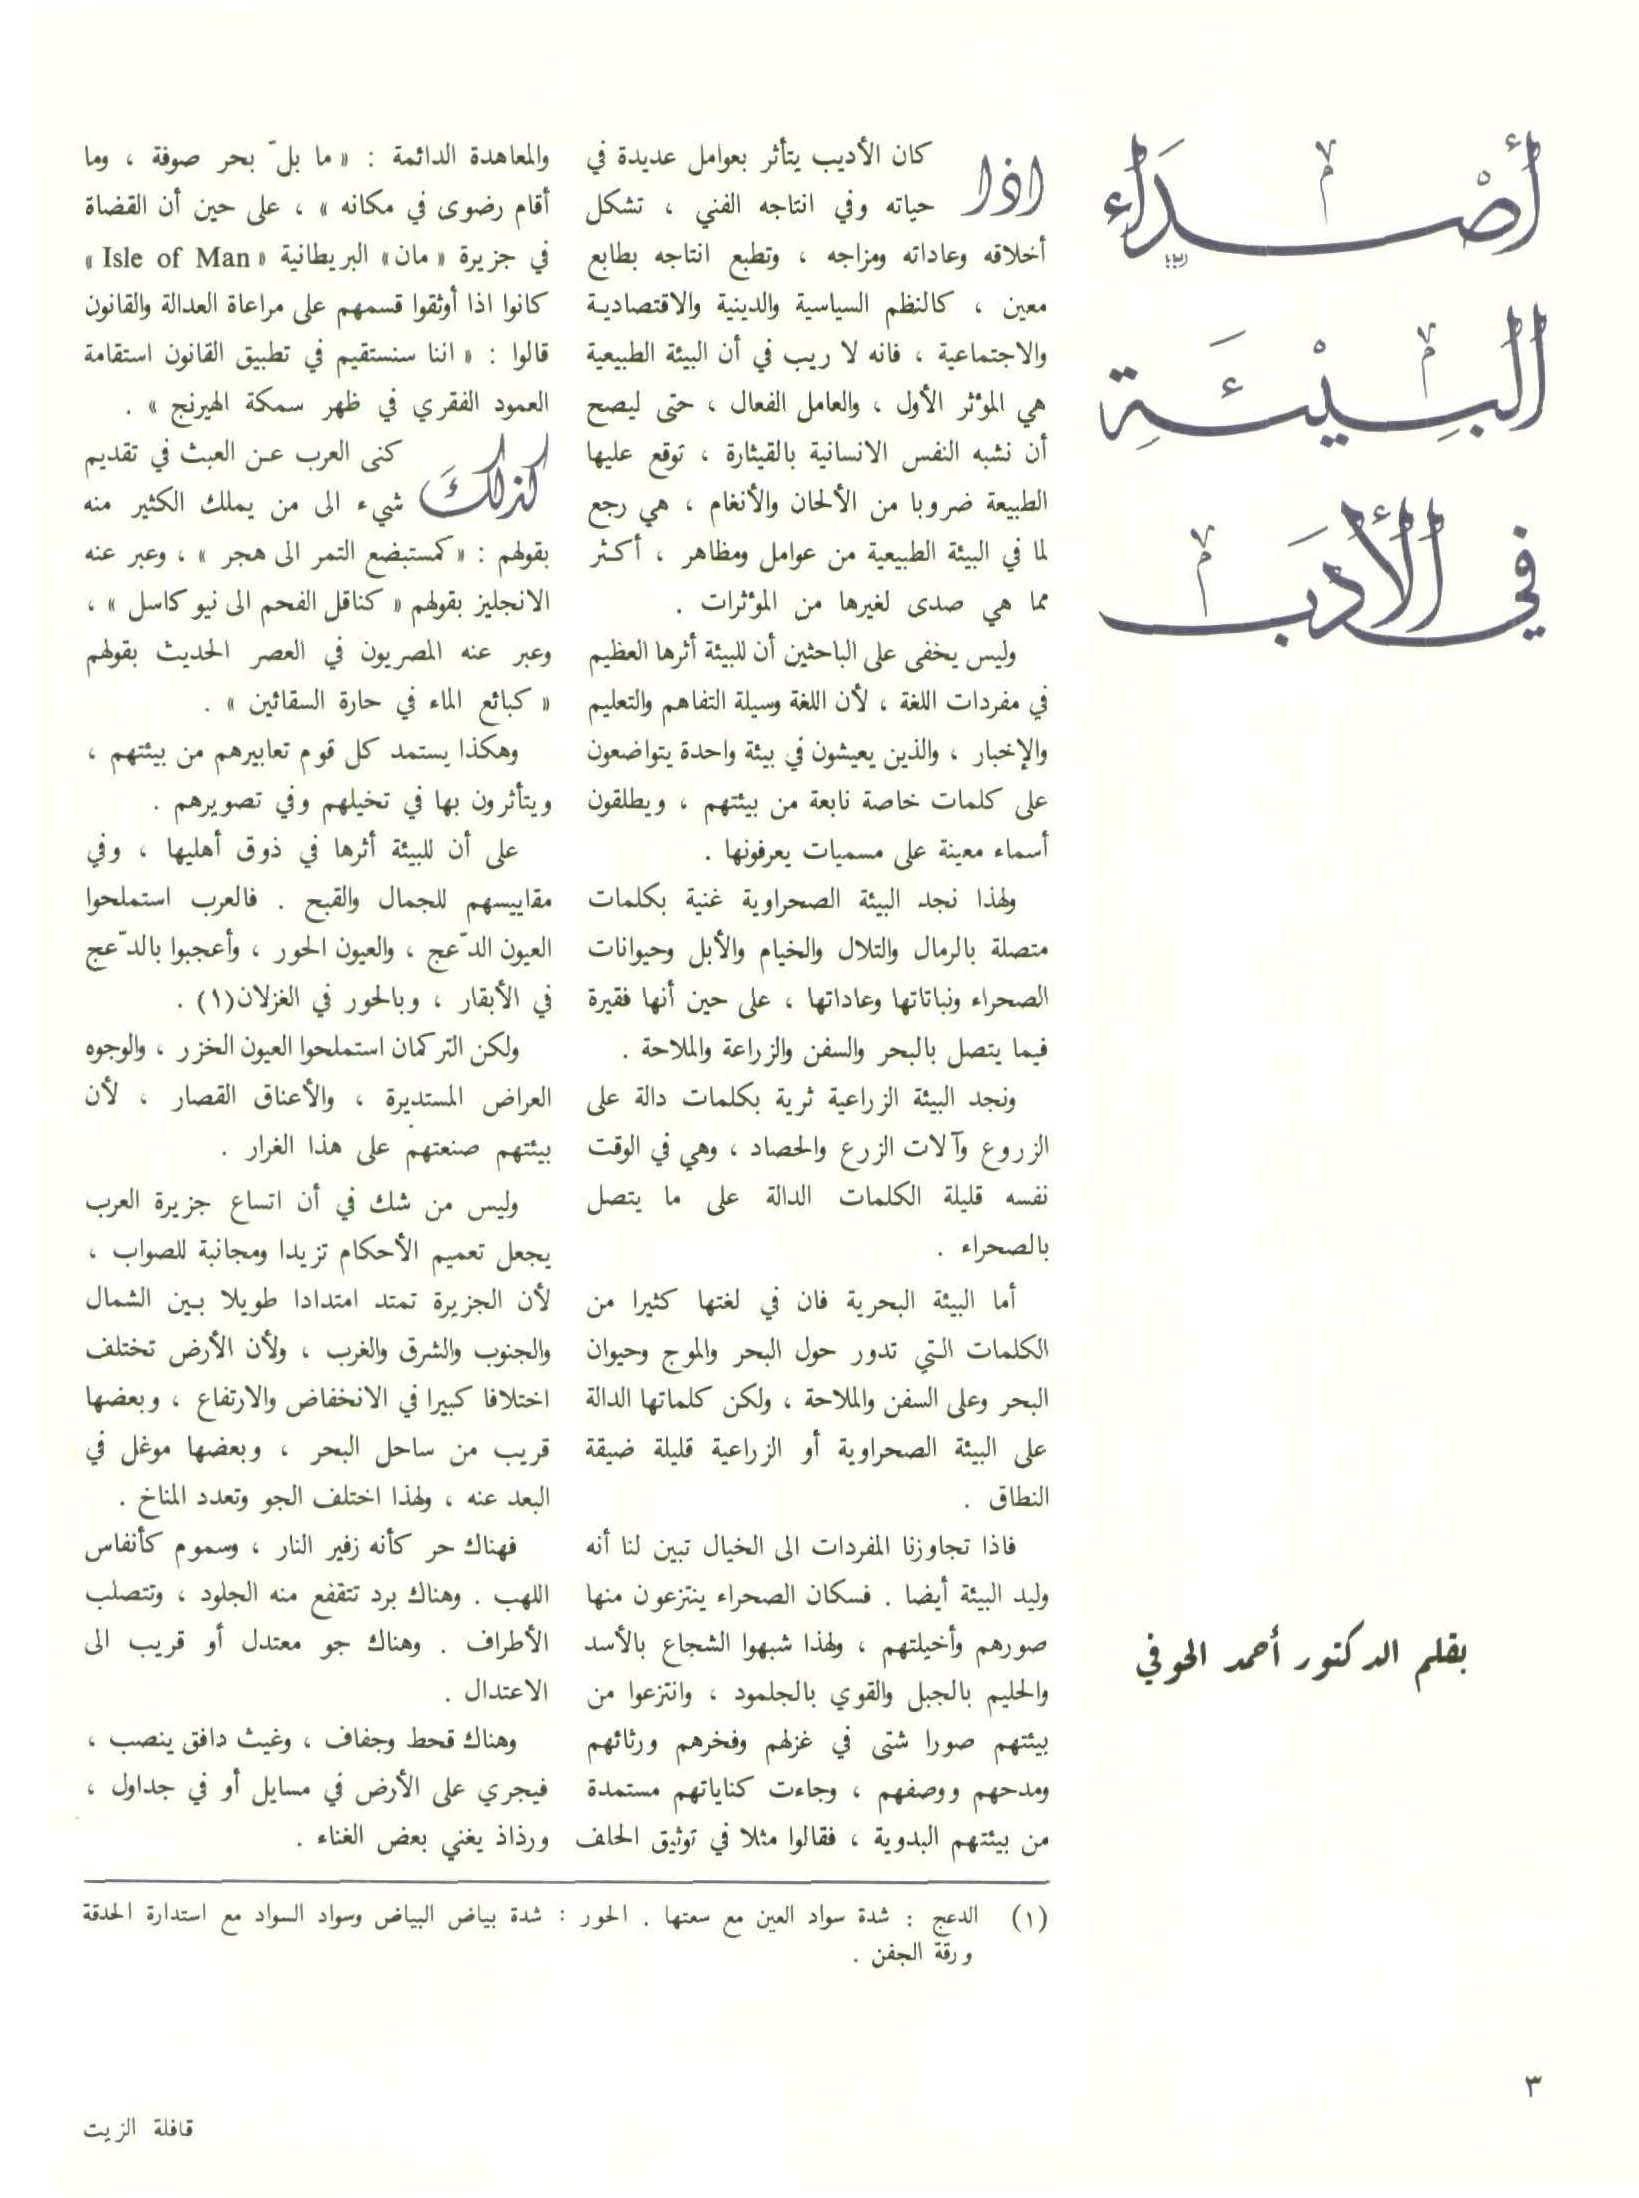 أصداء
البيئة
في الأدب
بقلم الدكتور أحمد الحوفي
اذا كان الأديب يتأثر بعوامل عديدة في
حياته وفي انتاجه الفني ، تشكل
أخلاقه وعاداته ومزاجه ، وتطبع انتاجه بطابع
معين ، كالنظم السياسية والدينية والاقتصادية
والاجتماعية ، فانه لا ريب في أن البيئة الطبيعية
هي المؤثر الأول ، والعامل الفعال ، حتى ليصح
أن نشبه النفس الانسانية بالقيثارة ، توقع عليها
الطبيعة ضروبا من الألحان والأنغام ، هي رجع
لما في البيئة الطبيعية من عوامل ومظاهر ، أكثر
مما هي صدى لغيرها من المؤثرات .
وليس يخفى على الباحثين أن للبيئة أثرها العظيم
في مفردات اللغة ، لأن اللغة وسيلة التفاهم والتعليم
والإخبار ، والذين يعيشون في بيئة واحدة يتواضعون
على كلمات خاصة نابعة من بيئتهم ، ويطلقون
أسماء معينة على مسميات يعرفونها .
ولهذا نجد البيئة الصحراوية غنية بكلمات
متصلة بالرمال والتلال والخيام والأبل وحيوانات
الصحراء ونباتاتها وعاداتها ، على حين أنها فقيرة
فيما يتصل بالبحر والسفن والزراعة والملاحة .
ونجد البيئة الزراعية ثرية بكلمات دالة على
الزروع وآلات الزرع والحصاد ، وهي في الوقت
نفسه قليلة الكلمات الدالة على ما يتصل
بالصحراء .
أما البيئة البحرية فان في لغتها كثيرا من
الكلمات التي تدور حول البحر والموج وحيوان
البحر وعلى السفن والملاحة ، ولكن كلماتها الدالة
على البيئة الصحراوية أو الزراعية قليلة ضيقة
النطاق .
فاذا تجاوزنا المفردات الى الخيال تبين لنا أنه
وليد البيئة أيضا . فسكان الصحراء ينتزعون منها
صورهم وأخيلتهم ، ولهذا شبهوا الشجاع بالأسد
والحليم بالجبل والقوي بالجلمود ، وانتزعوا من
بيئتهم صورا شتى في غزلهم وفخرهم ورثائهم
ومدحهم ووصفهم ، وجاءت كناياتهم مستمدة
من بيئتهم البدوية ، فقالوا مثلا في توثيق الحلف
والمعاهدة الدائمة : « ما بلّ بحر صوفة ، وما
أقام رضوى في مكانه » ، على حين أن القضاة
في جزيرة « مان» البريطانية « Isle of Man »
كانوا اذا أوثقوا قسمهم على مراعاة العدالة والقانون
قالوا : « اننا سنستقيم في تطبيق القانون استقامة
العمود الفقري في ظهر سمكة الهيرنج » .
كذلك كنى العرب عن العبث في تقديم
شيء الى من يملك الكثير منه
بقولهم : « كمستبضع التمر الى هجر » ، وعبر عنه
الانجليز بقولهم « كناقل الفحم الى نيو كاسل » ،
وعبر عنه المصريون في العصر الحديث بقولهم
« كبائع الماء في حارة السقائين » .
وهكذا يستمد كل قوم تعابيرهم من بيئتهم ،
ويتأثرون بها في تخيلهم وفي تصويرهم .
على أن للبيئة أثرها في ذوق أهليها ، وفي
مقاييسهم للجمال والقبح . فالعرب استملحوا
العيون الدّعج ، والعيون الحور ، وأعجبوا بالدّعج
في الأبقار ، وبالحور في الغزلان(١) .
ولكن التركمان استملحوا العيون الخزر ، والوجوه
العراض المستديرة ، والأعناق القصار ، لأن
بيئتهم صنعتهم على هذا الغرار .
وليس من شك في أن اتساع جزيرة العرب
يجعل تعميم الأحكام تزيدا ومجانبة للصواب ،
لأن الجزيرة تمتد امتدادا طويلا بين الشمال
والجنوب والشرق والغرب ، ولأن الأرض تختلف
اختلافا كبيرا في الانخفاض والارتفاع ، وبعضها
قريب من ساحل البحر ، وبعضها موغل في
البعد عنه ، ولهذا اختلف الجو وتعدد المناخ .
فهناك حر كأنه زفير النار ، وسموم كأنفاس
اللهب . وهناك برد تتقفع منه الجلود ، وتتصلب
الأطراف . وهناك جو معتدل أو قريب الى
الاعتدال .
وهناك قحط وجفاف ، وغيث دافق ينصب ،
فيجري على الأرض في مسايل أو في جداول ،
ورذاذ يغني بعض الغناء .
(١) الدعج : شدة سواد العين مع سعتها . الحور : شدة بياض البياض وسواد السواد مع استدارة الحدقة
ورقة الجفن .
٣
قافلة الزيت